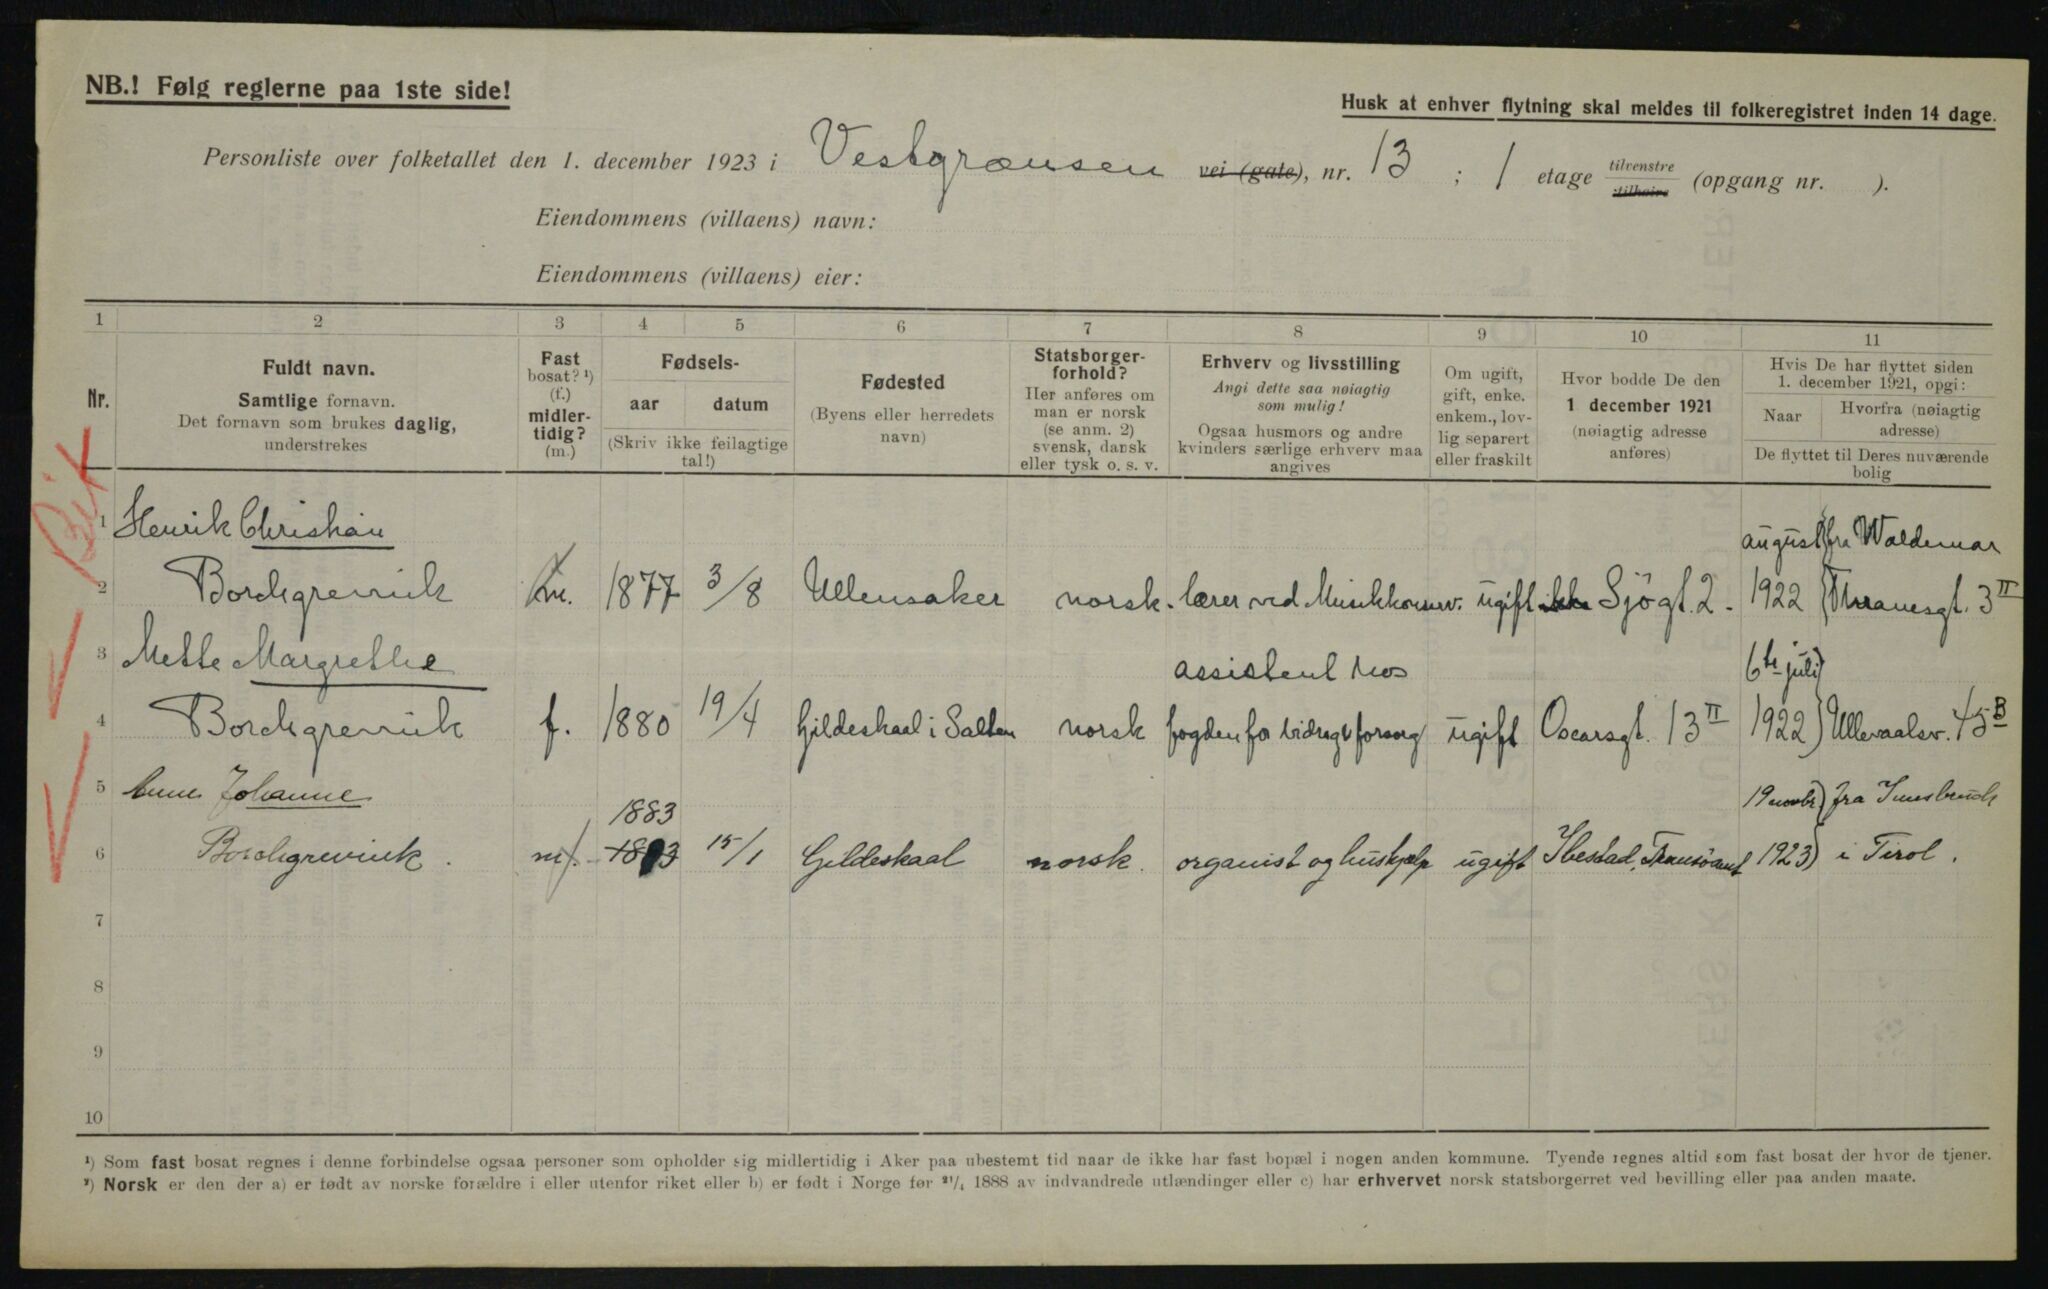 NB.! Følg reglerne paa 1ste side!
Husk at enhver flytning skal meldes til folkeregistret inden 14 dage.
Personliste over folketallet den 1. december 1923 i Vestgrænsen vei (gate), nr. 13 ; 1 etage tilvenstre tilhøire (opgang nr. ).
Eiendommens (villaens) navn:
Eiendommens (villaens) eier:
1 2 3 4 5 6 7 8 9 10 11
Nr.
Fuldt navn.
Samtlige fornavn.
Det fornavn som brukes daglig,
understrekes
Fast
bosat? ¹)
(f.)
midler-
tidig?
(m.)
Fødsels-
aar datum
(Skriv ikke feilagtige
tal!)
Fødested
(Byens eller herredets
navn)
Statsborger-
forhold?
Her anføres om
man er norsk
(se anm. 2)
svensk, dansk
eller tysk o. s. v.
Erhverv og livsstilling
Angi dette saa nøiagtig
som mulig!
Ogsaa husmors og andre
kvinders særlige erhverv maa
angives
Om ugift,
gift, enke.
enkem., lov-
lig separert
eller fraskilt
Hvor bodde De den
1 december 1921
(nøiagtig adresse
anføres)
Hvis De har flyttet siden
1. december 1921, opgi:
Naar
Hvorfra (nøiagtig
adresse)
De flyttet til Deres nuværende
bolig
1 Henrik Christian august fra Waldemar
2 Borchgrevink m. 1877 3/8 Ullensaker norsk. lærer ved Musikkonserv. ugift Sjögt. 2. 1922 Thranesgt. 3 II
3 Mette Margrethe assistent hos 6te juli
4 Borchgrevink f. 1880 19/4 Gildeskaal i Salten norsk fogden for bidragsforsorg ugift Oscarsgt. 13 II 1922 Ullevaalsv. 45 B
5 Anne Johanne 1883 19 novbr fra Innsbruck
6 Borchgrevink. m. 15/1 Gildeskaal norsk. organist og huskjælp ugift Ibestad, Tromsöamt 1923 i Tirol.
7
8
9
10
¹) Som fast bosat regnes i denne forbindelse ogsaa personer som opholder sig midlertidig i Aker paa ubestemt tid naar de ikke har fast bopæl i nogen anden kommune. Tyende regnes altid som fast bosat der hvor de tjener.
²) Norsk er den der a) er født av norske forældre i eller utenfor riket eller b) er født i Norge før ²¹/₄ 1888 av indvandrede utlændinger eller c) har erhvervet norsk statsborgerret ved bevilling eller paa anden maate.